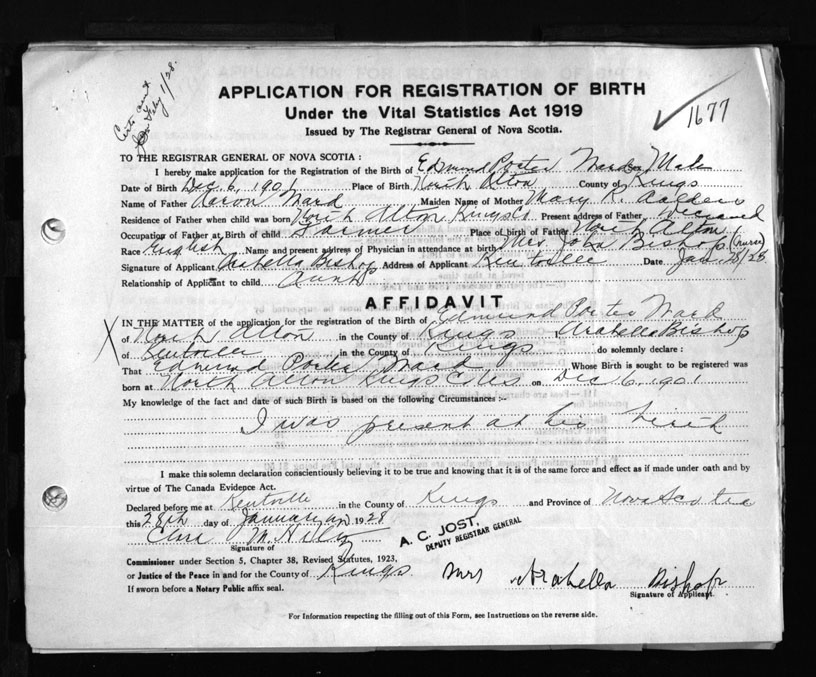 APPLICATION FOR REGISTRATION OF BIRTH
Under the Vital Statistics Act 1919
Issued by The Registrar General of Nova Scotia.
1677
TO THE REGISTRAR GENERAL OF NOVA SCOTIA :
I hereby make application for the Registration of the Birth of Edmund Porter Ward Sex Male
Date of Birth Dec 6, 1901 Place of Birth North Alton County of Kings
Name of Father Aaron Ward Maiden Name of Mother Mary K.
Residence of Father when child was born North Alton Kings Co Present address of Father Deceased
Occupation of Father at Birth of child Farmer Place of birth of Father North Alton
Race English Name and present address of Physician in attendance at birth Mrs John Bishop (nurse)
Signature of Applicant Arabella Bishop Address of Applicant Kentville Date Jan 28/28
Relationship of Applicant to child Aunt
AFFIDAVIT
IN THE MATTER of the application for the registration of the Birth of Edmund Porter Ward
of North Alton in the County of Kings I, Arabella Bishop
of Kentville in the County of Kings do solemnly declare :
That Edmund Porter Ward Whose Birth is sought to be registered was
born at North Alton Kings Co NS on Dec 6, 1901
My knowledge of the fact and date of such Birth is based on the following Circumstances :-
I was present at his birth
I make this solemn declaration conscientiously believing it to be true and knowing that it is of the same force and effect as if made under oath and by
virtue of The Canada Evidence Act.
Declared before me at Kentville in the County of Kings and Province of Nova Scotia
this 28th day of January 1928
A. C. JOST,
DEPUTY REGISTRAR GENERAL
Signature of
Commissioner under Section 5, Chapter 38, Revised Statutes, 1923,
or Justice of the Peace in and for the County of Kings
Mrs Arabella Bishop
If sworn before a Notary Public affix seal.
Signature of Applicant.
For Information respecting the filling out of this Form, see Instructions on the reverse side.